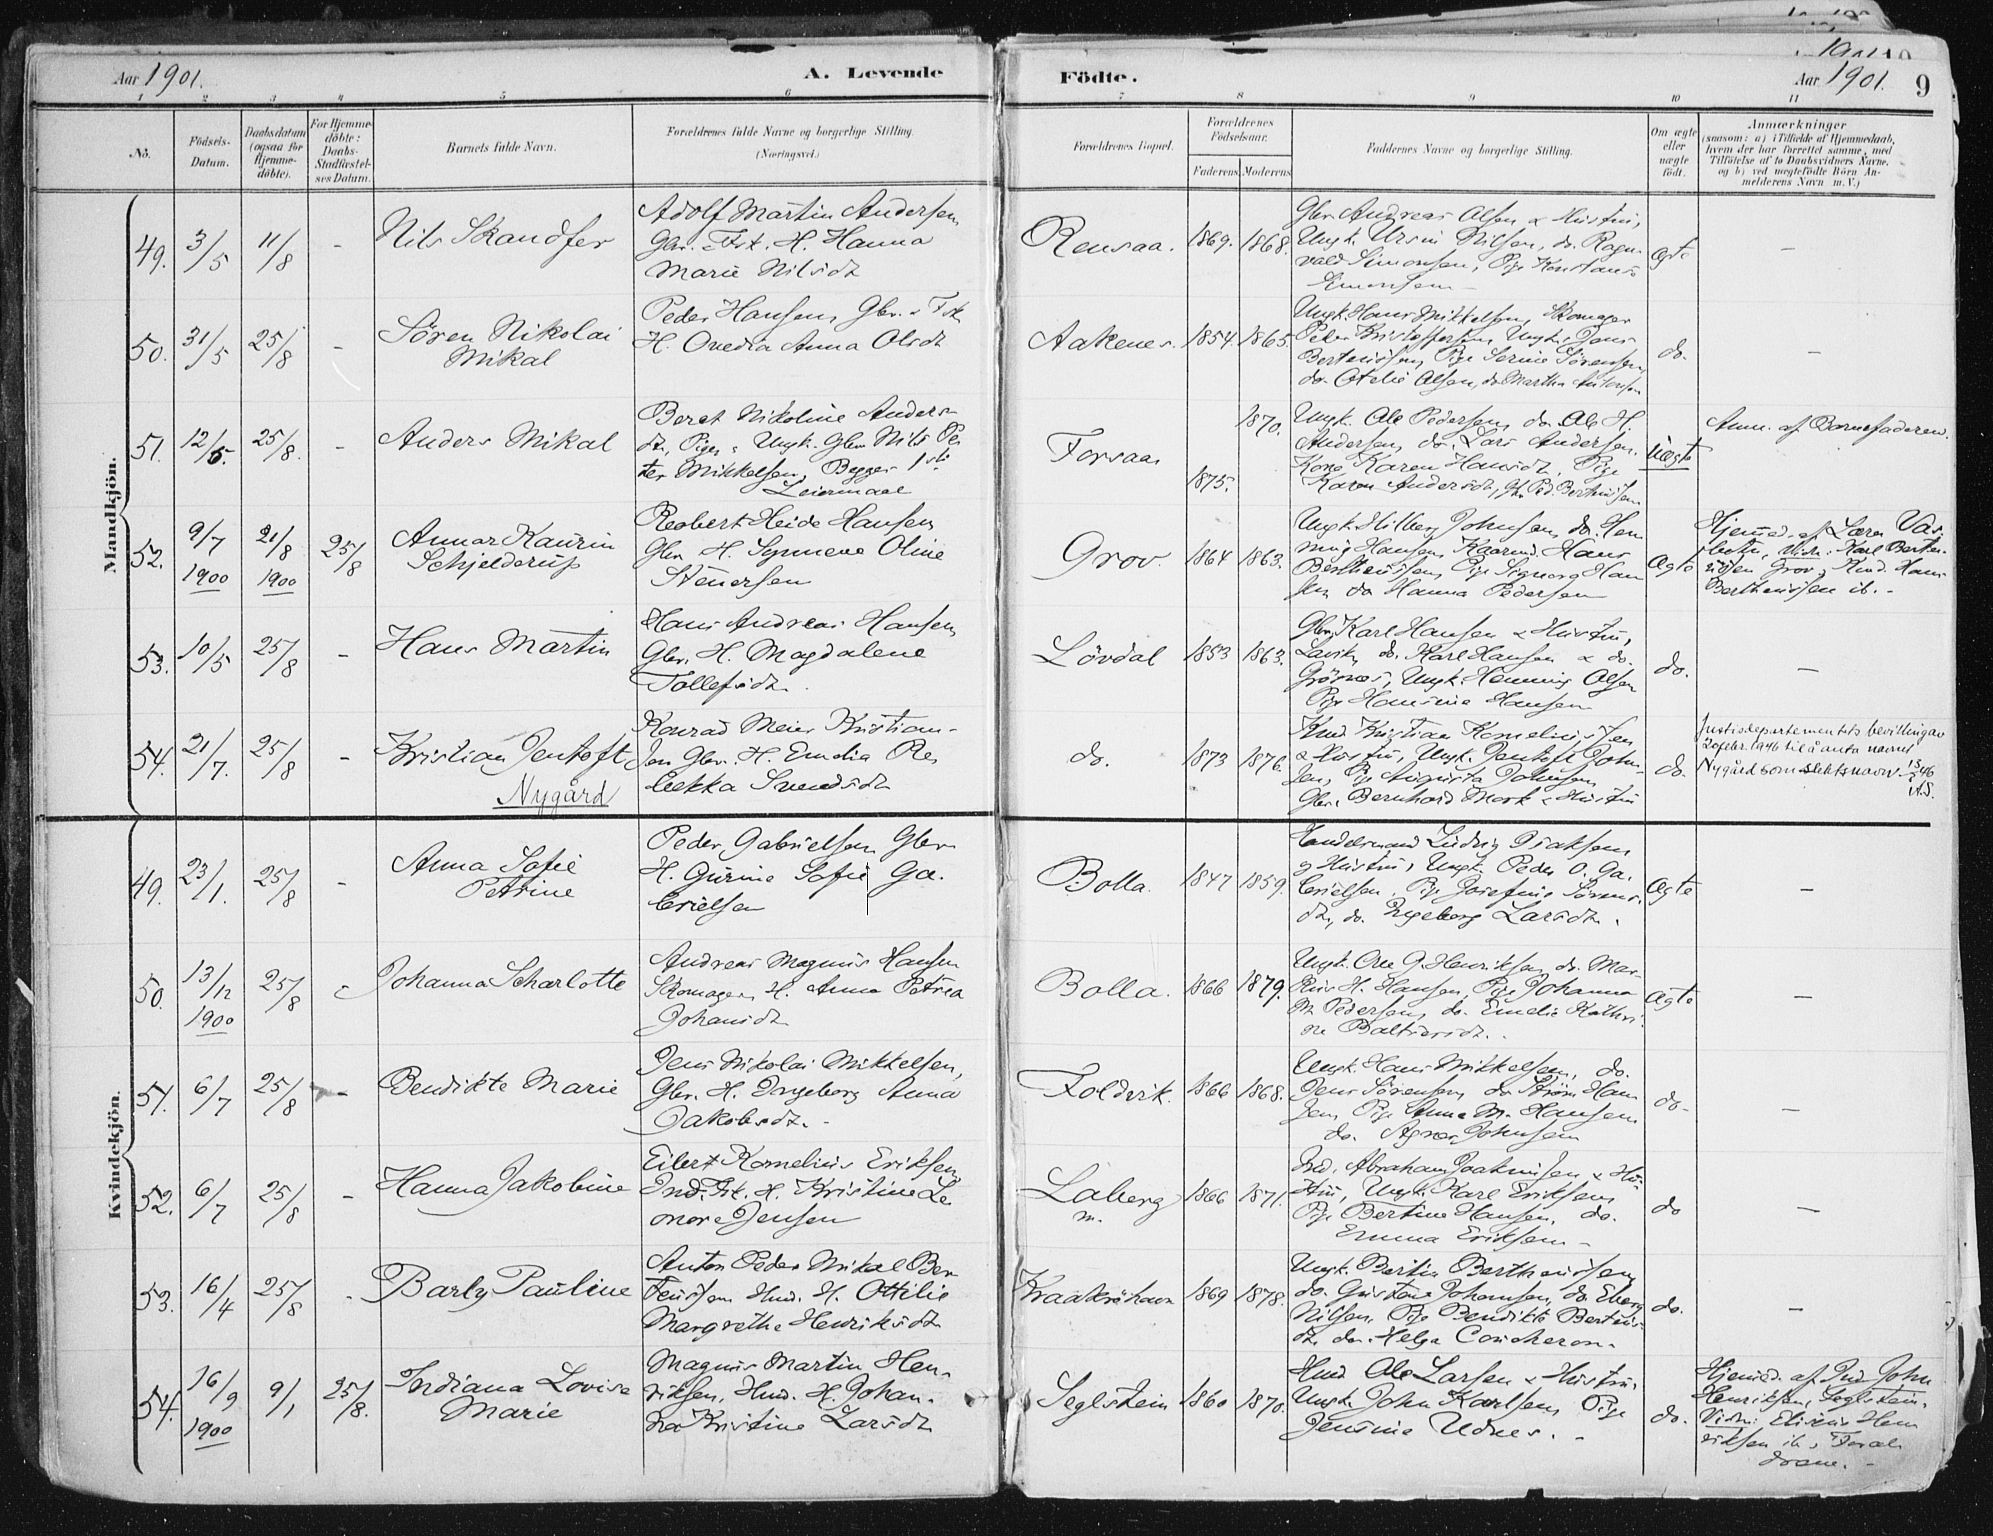 Aar 1901.
A. Levende
Födte.
Aar 1901.
9
1 2 3 4 5 6 7 8 9 10 11
No.
Födsels-
Datum.
Daabsdatum
(ogsaa for
Hjemme-
döbte).
For Hjemme-
döbte:
Daabs-
Stadfæstel-
ses Datum.
Barnets fulde Navn.
Forældrenes fulde Navne og borgerlige Stilling.
(Næringsvei.)
Forældrenes Bopæl.
Forældrenes
Födselsaar.
Faderens
Moderens
Faddernes Navne og borgerlige Stilling.
Om ægte
eller
uægte
födt.
Anmærkninger
(saasom: a) i Tilfælde af Hjemmedaab,
hvem der har forrettet samme, med
Tilföielse af to Daabsvidners Navne,
og b) ved uægtefödte Börn An-
melderens Navn m. V.)
Mandkjön.
49. 3/5 11/8 -
Nils Skandfer
Adolf Martin Andersen
Gbr. Fsk. H. Hanna
Marie Nilsdt
Rensaa. 1869. 1868.
Gbr Andreas Olsen & Hustru,
Ungk. Ursin Nilsen, do. Ragn-
vald Simonsen, Pige Konstanse
Simonsen
ægte -
50. 31/5 25/8 -
Sören Nikolai
Mikal
Peder Hansen Gbr. & Fsk
H. Ovedia Anna Olsdt
Aakenes. 1854. 1865.
Ungk. Hans Mikkelsen, Skomager
Peder Kristoffersen, Ungk. Jens
Berteussen, Pige Serine Sörensen,
do. Otelie Olsen, do. Martha Antonsen
do. -
51. 12/5. 25/8. -
Anders Mikal
Beret Nikoline Anders-
dt., Pige, & Ungk. Gbr Nils Pe-
ter Mikkelsen, Begges 1ste
Leiermaal
Forsaa 1870. 1875.
Ungk. Ole Pedersen, do. Ole H.
Andersen, do. Lars Andersen.
Kone Karen Hansdt, Pige
Karen Andersdt, Gbr. Ped. Berteussen
uægte
Anm. af Barnefaderen.
52. 9/7 1900 21/8 1900 25/8
Annar Kaurin
Schjelderup
Reobert Heide Hansen
Gbr H. Synneve Oline
Stenersen
Grov. 1864 1863.
Ungk. Hilberg Johnsen, do. Hen
ning Hansen, Kaarmd. Hans
Bertheussen, Pige Signora Han
sen, do Hanna Pedersen
ægte
Hjemmed. af Lærer Vas-
botn, Vidn: Karl Berteu-
ssen Grov, Hmd. Hans
Bertheussen ib. -
53. 10/5 25/8 -
Hans Martin
Hans Andreas Hansen
Gbr. H. Magdalene
Tollefsdt.
Lövdal 1853 1863.
Gbr, Karl Hansen & Hustru,
Lavik, do. Karl Hansen & do.
Grösnes, Ungk. Henning Olsen
Pige Hansine Hansen
do. -
54. 21/7. 25/8 -
Kristian Jentoft
Nygård
Konrad Meier Kristian-
sen Gbr. H. Emelia Re
bekka Svendsdt
do. 1873 1876.
Hmd Kristian Korneliussen
& Hustru, Ungk. Jentoft John-
sen, Pige Augusta Johnsen,
Gbr. Bernhard Mork & Hustru
do.
Justisdepartementets bevilling av
20 febr. 1946 til å anta navnet
Nygård som slektsnavn.
Kvindekjön.
49. 23/1. 25/8 -
Anna Sofie
Petrine
Peder Gabrielsen Gbr
H. Gurine Sofie Ga-
brielsen
Bolla. 1847 1859.
Handelsmand Ludvig Isaksen
& Hustru, Ungk. Peder O. Ga-
brielsen, Pige Josefine Sörens-
dt, do. Ingeborg Larsdt.
ægte -
50. 13/12 1900 25/8 -
Johanna Scharlotte
Andreas Magnus Hansen
Skomager, H. Anna Petrea
Johansdt
Bolla. 1866 1879.
Ungk. Ove J Henriksen, do. Mar-
kus H. Hansen, Pige Johanna
M. Pedersen, do. Emelie Kathri-
ne Baltsersdt.
ægte -
51. 6/7 25/8 -
Bendikte Marie
Jens Nikolai Mikkelsen,
Gbr. H. Ingeborg Anna
Jakobsdt. -
Foldvik. 1866 1868.
Ungk. Hans Mikkelsen, do.
Jens Sörensen, do Ström Han
sen, Pige Anna M. Hansen,
do. Agnes Johnsen
do. -
52. 6/7 25/8 -
Hanna Jakobine
Eilert Kornelius Eriksen
Ind. Fsk. H. Kristine Le
onore Jensen
Laberg m. 1866 1871.
Ind. Abraham Joakimsen & Hu-
stru, Ungk. Karl Eriksen,
Pige Bertine Hansen, do.
Emma Eriksen -
do -
53. 16/4 25/8 -
Barly Pauline
Anton Peder Mikal Ber
teussen Hmd. H. Ottilie
Margrethe Henriksdt
Kraakröhavn 1869 1878.
Ungk. Bertin Bertheussen,
do. Gustav Johansen, do. Eberg
Nilsen, Pige Bendikte Berteus-
dt, do. Helga Coucheron.
do. -
54. 16/9 1900 9/1 25/8.
Indiana Lovise
Marie
Magnus Martin Hen-
riksen, Hmd. H. Johan-
na Kristine Larsdt
Seglstein 1860 1870.
Hmd Ole Larsen & Hustru,
Ungk. John Karlsen, Pige
Jensine Udnes. -
do.
Hjemmed. af Ind. John
Henriksen, Seglstein.
Vidn: Elisius Hen
riksen ib, Foræl-
drene. -